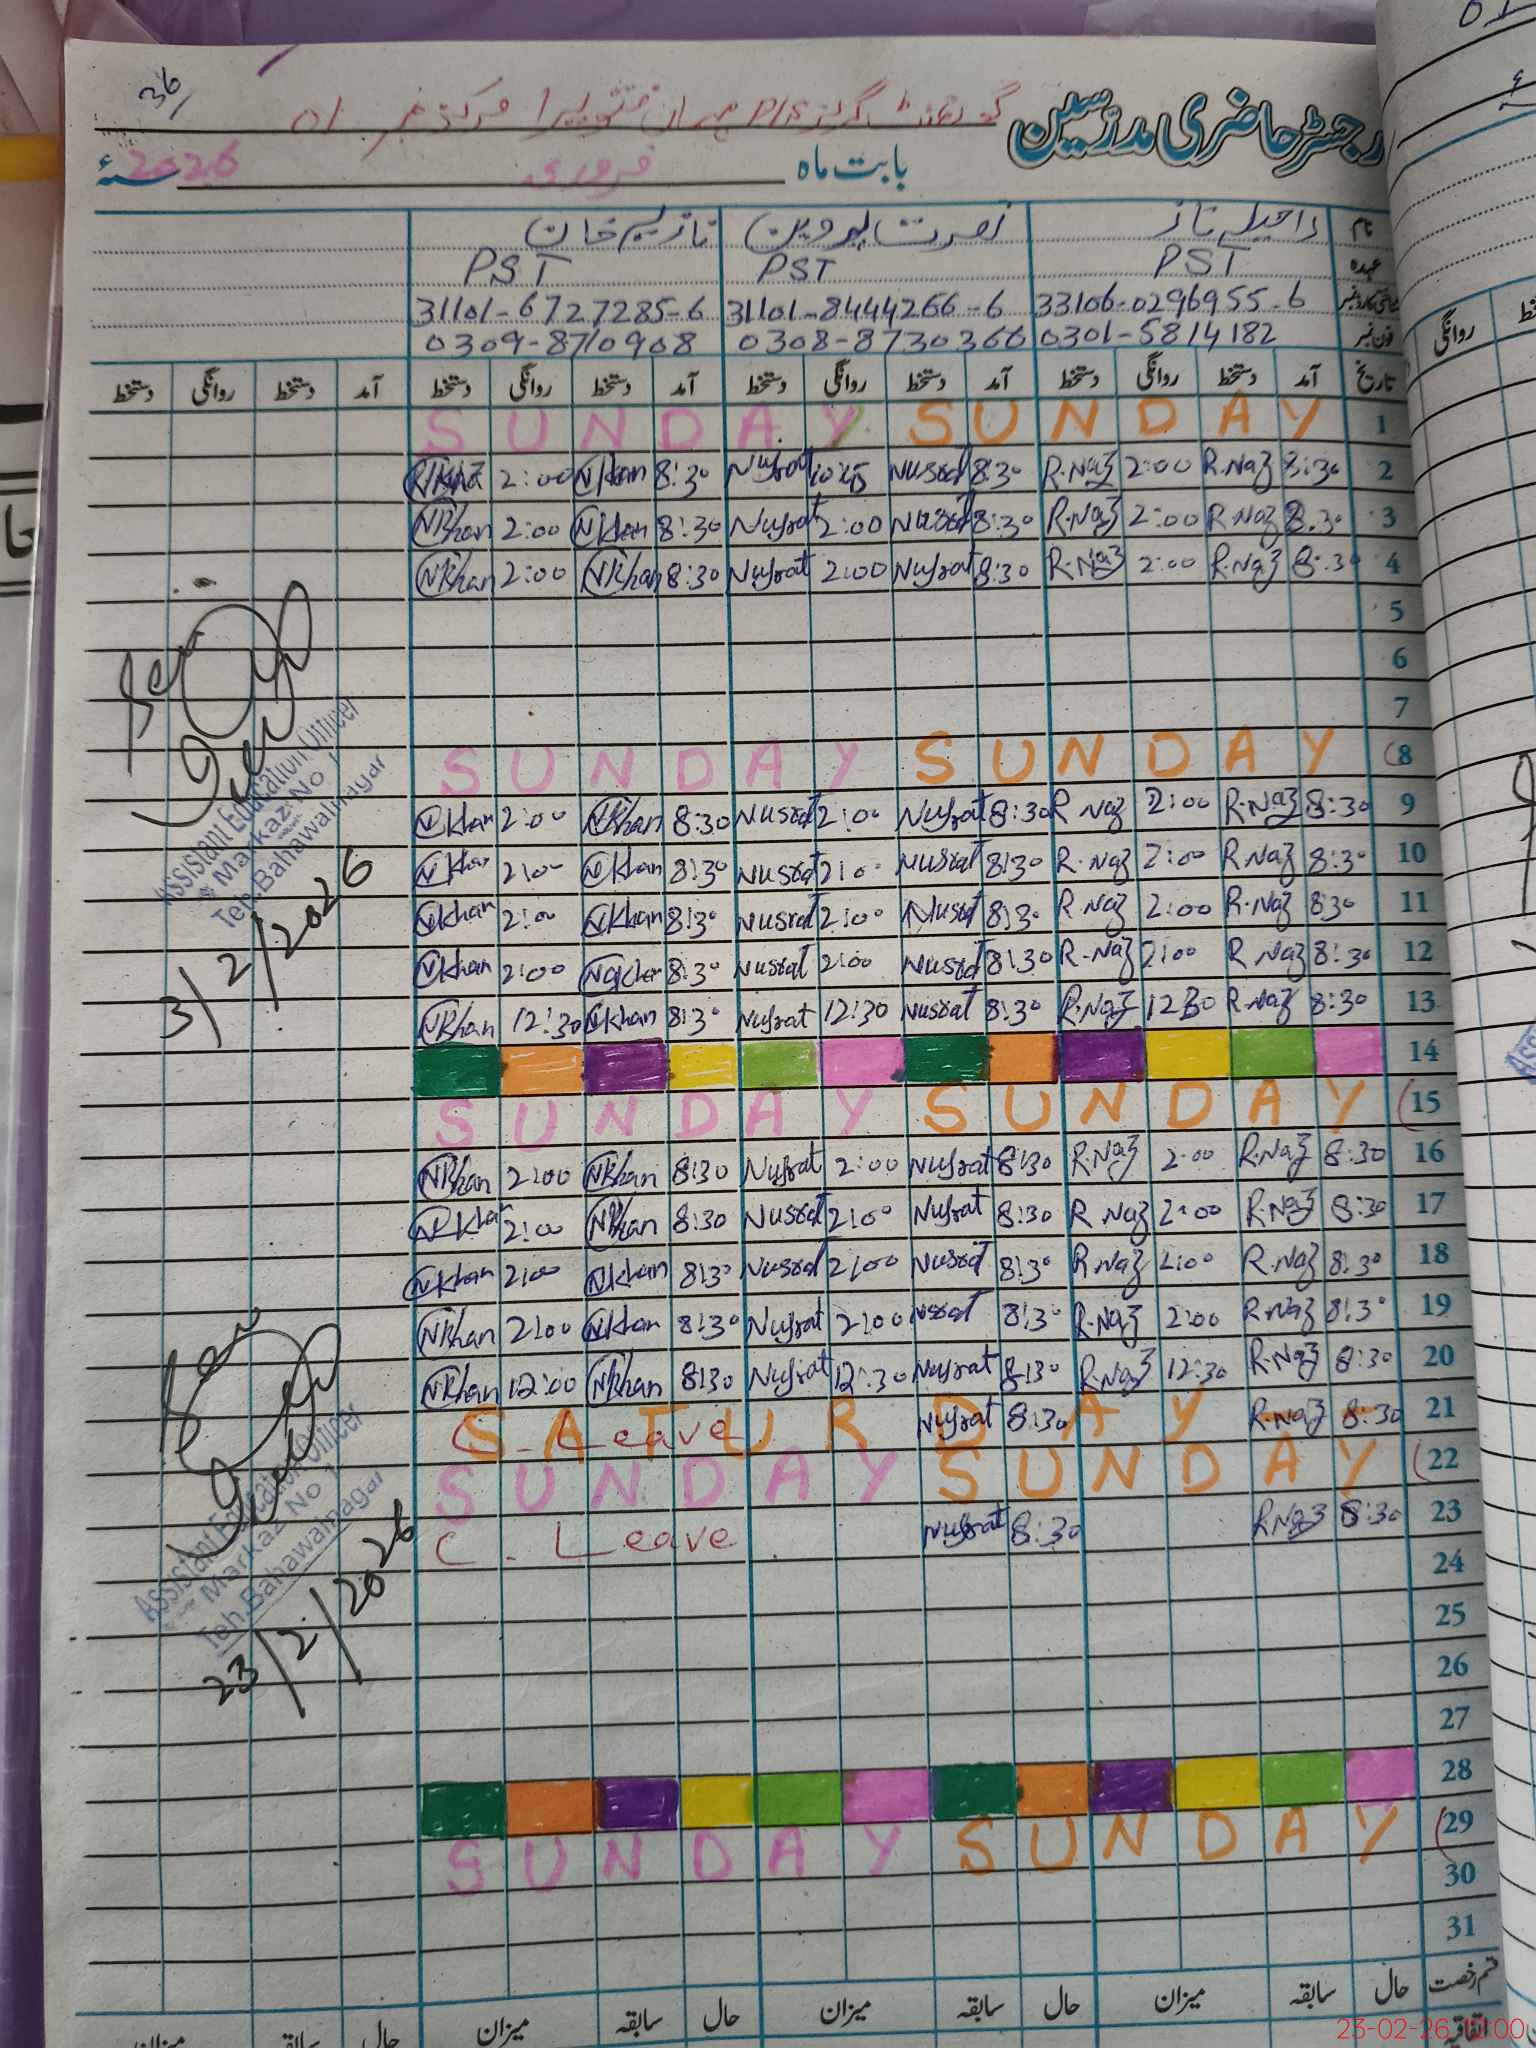 36/
رجسٹر حاضری مدرسین گورنمنٹ گرلز P/S مرکز نمبر 01
بابت ماہ فروری 2026 سنہء
نام راحیلہ ناز نصرت پروین نازیہ خان
عہدہ PST PST PST
شناختی کارڈ نمبر 33106-0296955-6 31101-8444266-6 31101-6727285-6
فون نمبر 0301-5814182 0308-8730366 0309-8710908
تاریخ آمد دستخط روانگی دستخط آمد دستخط روانگی دستخط آمد دستخط روانگی دستخط آمد دستخط روانگی دستخط
SUNDAY SUNDAY 1
2:00 N Khan 8:30 Nusrat 10:45 Nusrat 8:30 R.Naz 2:00 R.Naz 8:30 2
N Khan 2:00 N Khan 8:30 Nusrat 2:00 Nusrat 8:30 R.Naz 2:00 R.Naz 8:30 3
N Khan 2:00 N Khan 8:30 Nusrat 2:00 Nusrat 8:30 R.Naz 2:00 R.Naz 8:30 4
5
6
7
SUNDAY SUNDAY 8
N Khan 2:00 N Khan 8:30 Nusrat 2:00 Nusrat 8:30 R.Naz 2:00 R.Naz 8:30 9
N Khan 2:00 N Khan 8:30 Nusrat 2:00 Nusrat 8:30 R.Naz 2:00 R.Naz 8:30 10
N Khan 2:00 N Khan 8:30 Nusrat 2:00 Nusrat 8:30 R.Naz 2:00 R.Naz 8:30 11
N Khan 2:00 N Khan 8:30 Nusrat 2:00 Nusrat 8:30 R.Naz 2:00 R.Naz 8:30 12
N Khan 12:30 N Khan 8:30 Nusrat 12:30 Nusrat 8:30 R.Naz 12:30 R.Naz 8:30 13
14
SUNDAY SUNDAY 15
N Khan 2:00 N Khan 8:30 Nusrat 2:00 Nusrat 8:30 R.Naz 2:00 R.Naz 8:30 16
N Khan 2:00 N Khan 8:30 Nusrat 2:00 Nusrat 8:30 R Naz 2:00 R.Naz 8:30 17
N Khan 2:00 N Khan 8:30 Nusrat 2:00 Nusrat 8:30 R.Naz 2:00 R.Naz 8:30 18
N Khan 2:00 N Khan 8:30 Nusrat 2:00 Nusrat 8:30 R.Naz 2:00 R.Naz 8:30 19
N Khan 12:00 N Khan 8:30 Nusrat 12:30 Nusrat 8:30 R.Naz 12:30 R.Naz 8:30 20
SATURDAY C. Leave Nusrat 8:30 R.Naz 8:30 21
SUNDAY SUNDAY 22
C. Leave Nusrat 8:30 R.Naz 8:30 23
24
25
26
27
28
SUNDAY SUNDAY 29
30
31
قسم رخصت حال سابقہ میزان حال سابقہ میزان حال سابقہ میزان حال سابقہ میزان
اتفاقیہ
Assistant Education Officer
Markaz No 1
Teh. Bahawalnagar
3/2/2026
Assistant Education Officer
Markaz No 1
Teh. Bahawalnagar
23/2/2026
روانگی
23-02-26 12:00